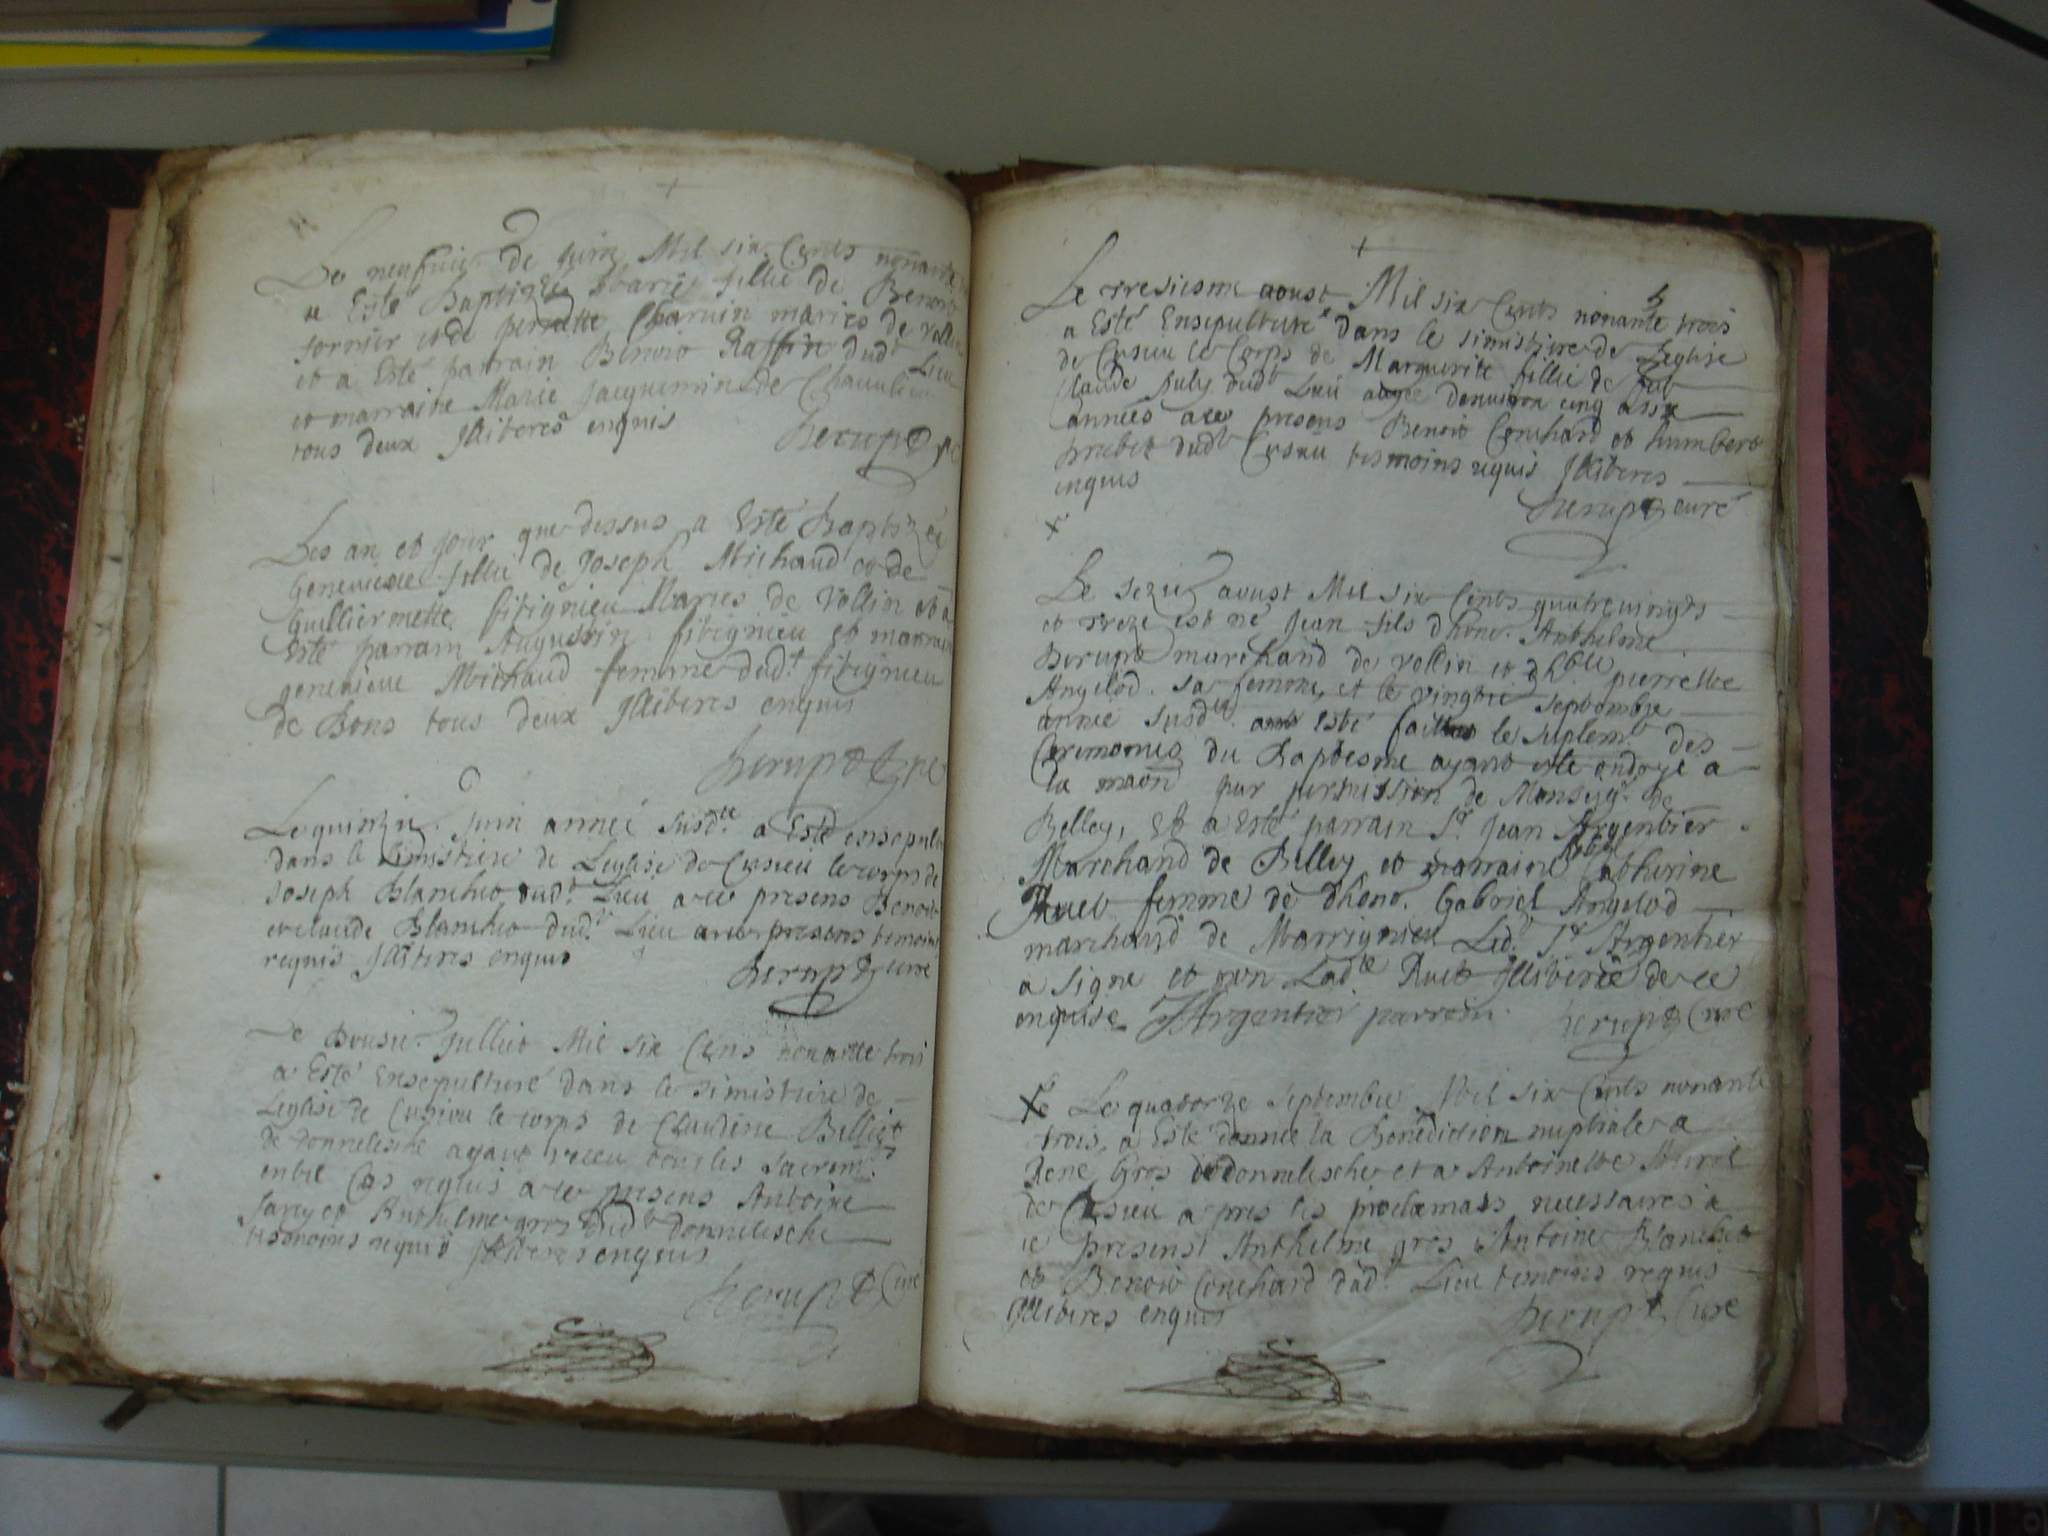 Le neufvie. de juin Mil six Cents nonante
a Esté Baptizée Marie fillie de Benoit
fornier et de perrette Charuin mariés de Vollin
et a Esté parrain Benoit Raffin dudt Lieu
et marraine Marie Jacquemin de
tous deux Illiteres enquis
Herupt
Les an et jour que dessus a Esté Baptizée
Genevieve fillie de Joseph Michaud et de
Guilliermette fitignieu Maries de Vollin et a
Esté parrain Augustin fitignieu et marraine
genevieve Michaud femme dudt fitignieu
de Bons tous deux Illiteres enquis
herupt
Le quinzie. Juin année susdte a Esté ensepult
dans le simistiere de Leglise de Cusieu le corps de
Joseph Blanchet dudt Lieu avec presens Benoit
et claude Blanchet dudt Lieu avec presens temoins
requis Illiteres enquis
herupt curé
Le Dousie. Julliet Mil six Cens nonante trois
a Esté Ensepulturé dans le simistiere de
Leglise de Cusieu le corps de Claudine Belliet
de donnelesche ayant receu tous les sacremts
en tel Cas requis avec presens Antoine
et Anthelme gros dudt donnelesche
tesmoins requis Illiteres enquis
herupt Curé
5
Le tresiesme aoust Mil six Cents nonante trois
a Esté Ensepulturé dans le simistiere de Leglise
de Cusieu le Corps de Marguerite fillie de
Claude July dudt Lieu agée denviron cinq a six
années avec presens Benoit Conchard et humbert
dudt Cusieu tesmoins requis Illiteres
enquis
herupt curé
Le sezie aoust Mil six Cents quatrevingts
et treze est né Jean fils dhono. Anthelme
Herupt marchand de vollin et dhble pierrette
Angelod sa femme, et le vingtie septembre
année susdte esté le suplemt des
Ceremonies du Baptesme ayant esté ondoyé a
la maon par permission de Monseigr de
Belley, Et a Esté parrain Sr Jean Argentier
Marchand de Belley et marraine Catherine
Ruet femme de dhono. Gabriel Angelod
marchand de Marrignieu Ledt Sr Argentier
a signé et non Ladte Ruet Illiterée de ce
enquise JArgentier parrein herupt Curé
Le quatorze Septembre Mil six Cents nonante
trois, a Esté donnée la Benediction nuptiale a
René Gros de donnelesche et a Antoinette
de Cusieu apres les proclamass necessaires a
ce presens Anthelme gros Antoine Blanchet
et Benoit Conchard dudt Lieu temoins requis
Illiteres enquis
herupt Curé